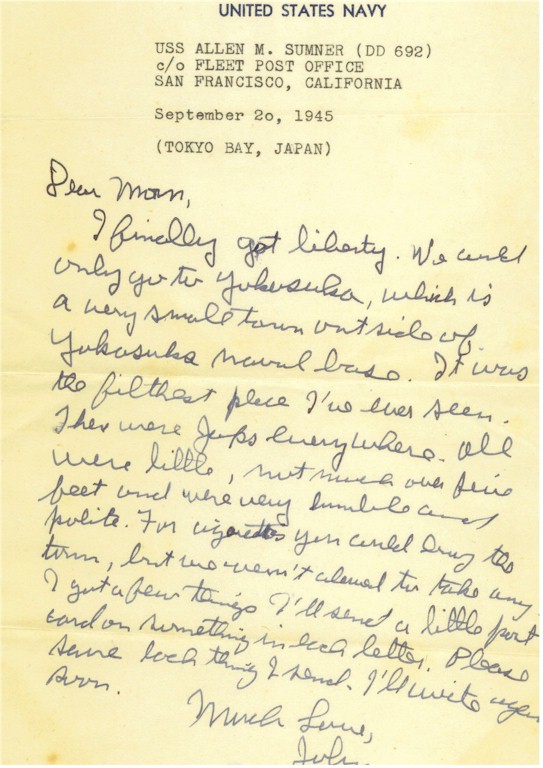 UNITED STATES NAVY
USS ALLEN M. SUMNER (DD 692)
c/o FLEET POST OFFICE
SAN FRANCISCO, CALIFORNIA
September 20, 1945
(TOKYO BAY, JAPAN)
Dear Mom,
I finally got liberty. We could
only go to Yokosuka, which is
a very small town outside of
Yokosuka naval base. It was
the filthest place I've ever seen.
Ther were Japs everywhere. All
were little, not much over five
feet and were very humble and
polite. For cigarettes you could buy the
town, but we weren't alowed to take any.
I got a few things I'll send a little post
card or something in each letter. Please
save each thing I send. I'll write again
soon.
Much Love,
John